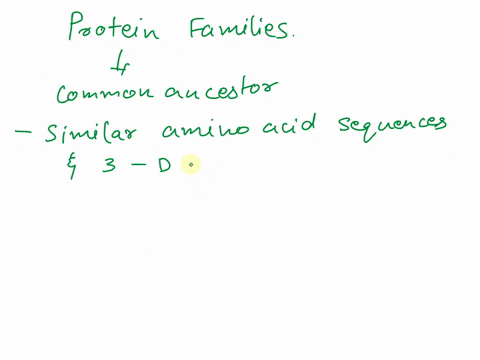 Protein Families.
↓
common ancestor
- Similar amino acid sequences
& 3 - D